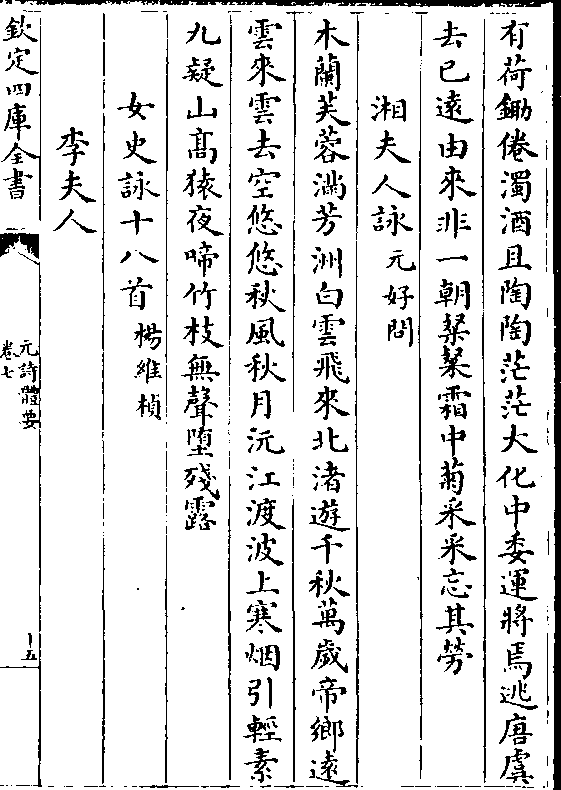 有荷鋤倦濁酒且陶陶茫茫大化中委運將焉逃唐虞
去已遠由來非一朝粲粲霜中菊采采忘其勞
湘夫人詠 元好問
木蘭芙蓉滿芳洲白雲飛來北渚遊千秋萬歲帝鄉遠
雲來雲去空悠悠秋風秋月沅江渡波上寒烟引輕素
九疑山髙猿夜啼竹枝無聲墮殘露
女史詠十八首 楊維楨
李夫人
欽定四庫全書
元詩體要
卷七
十五